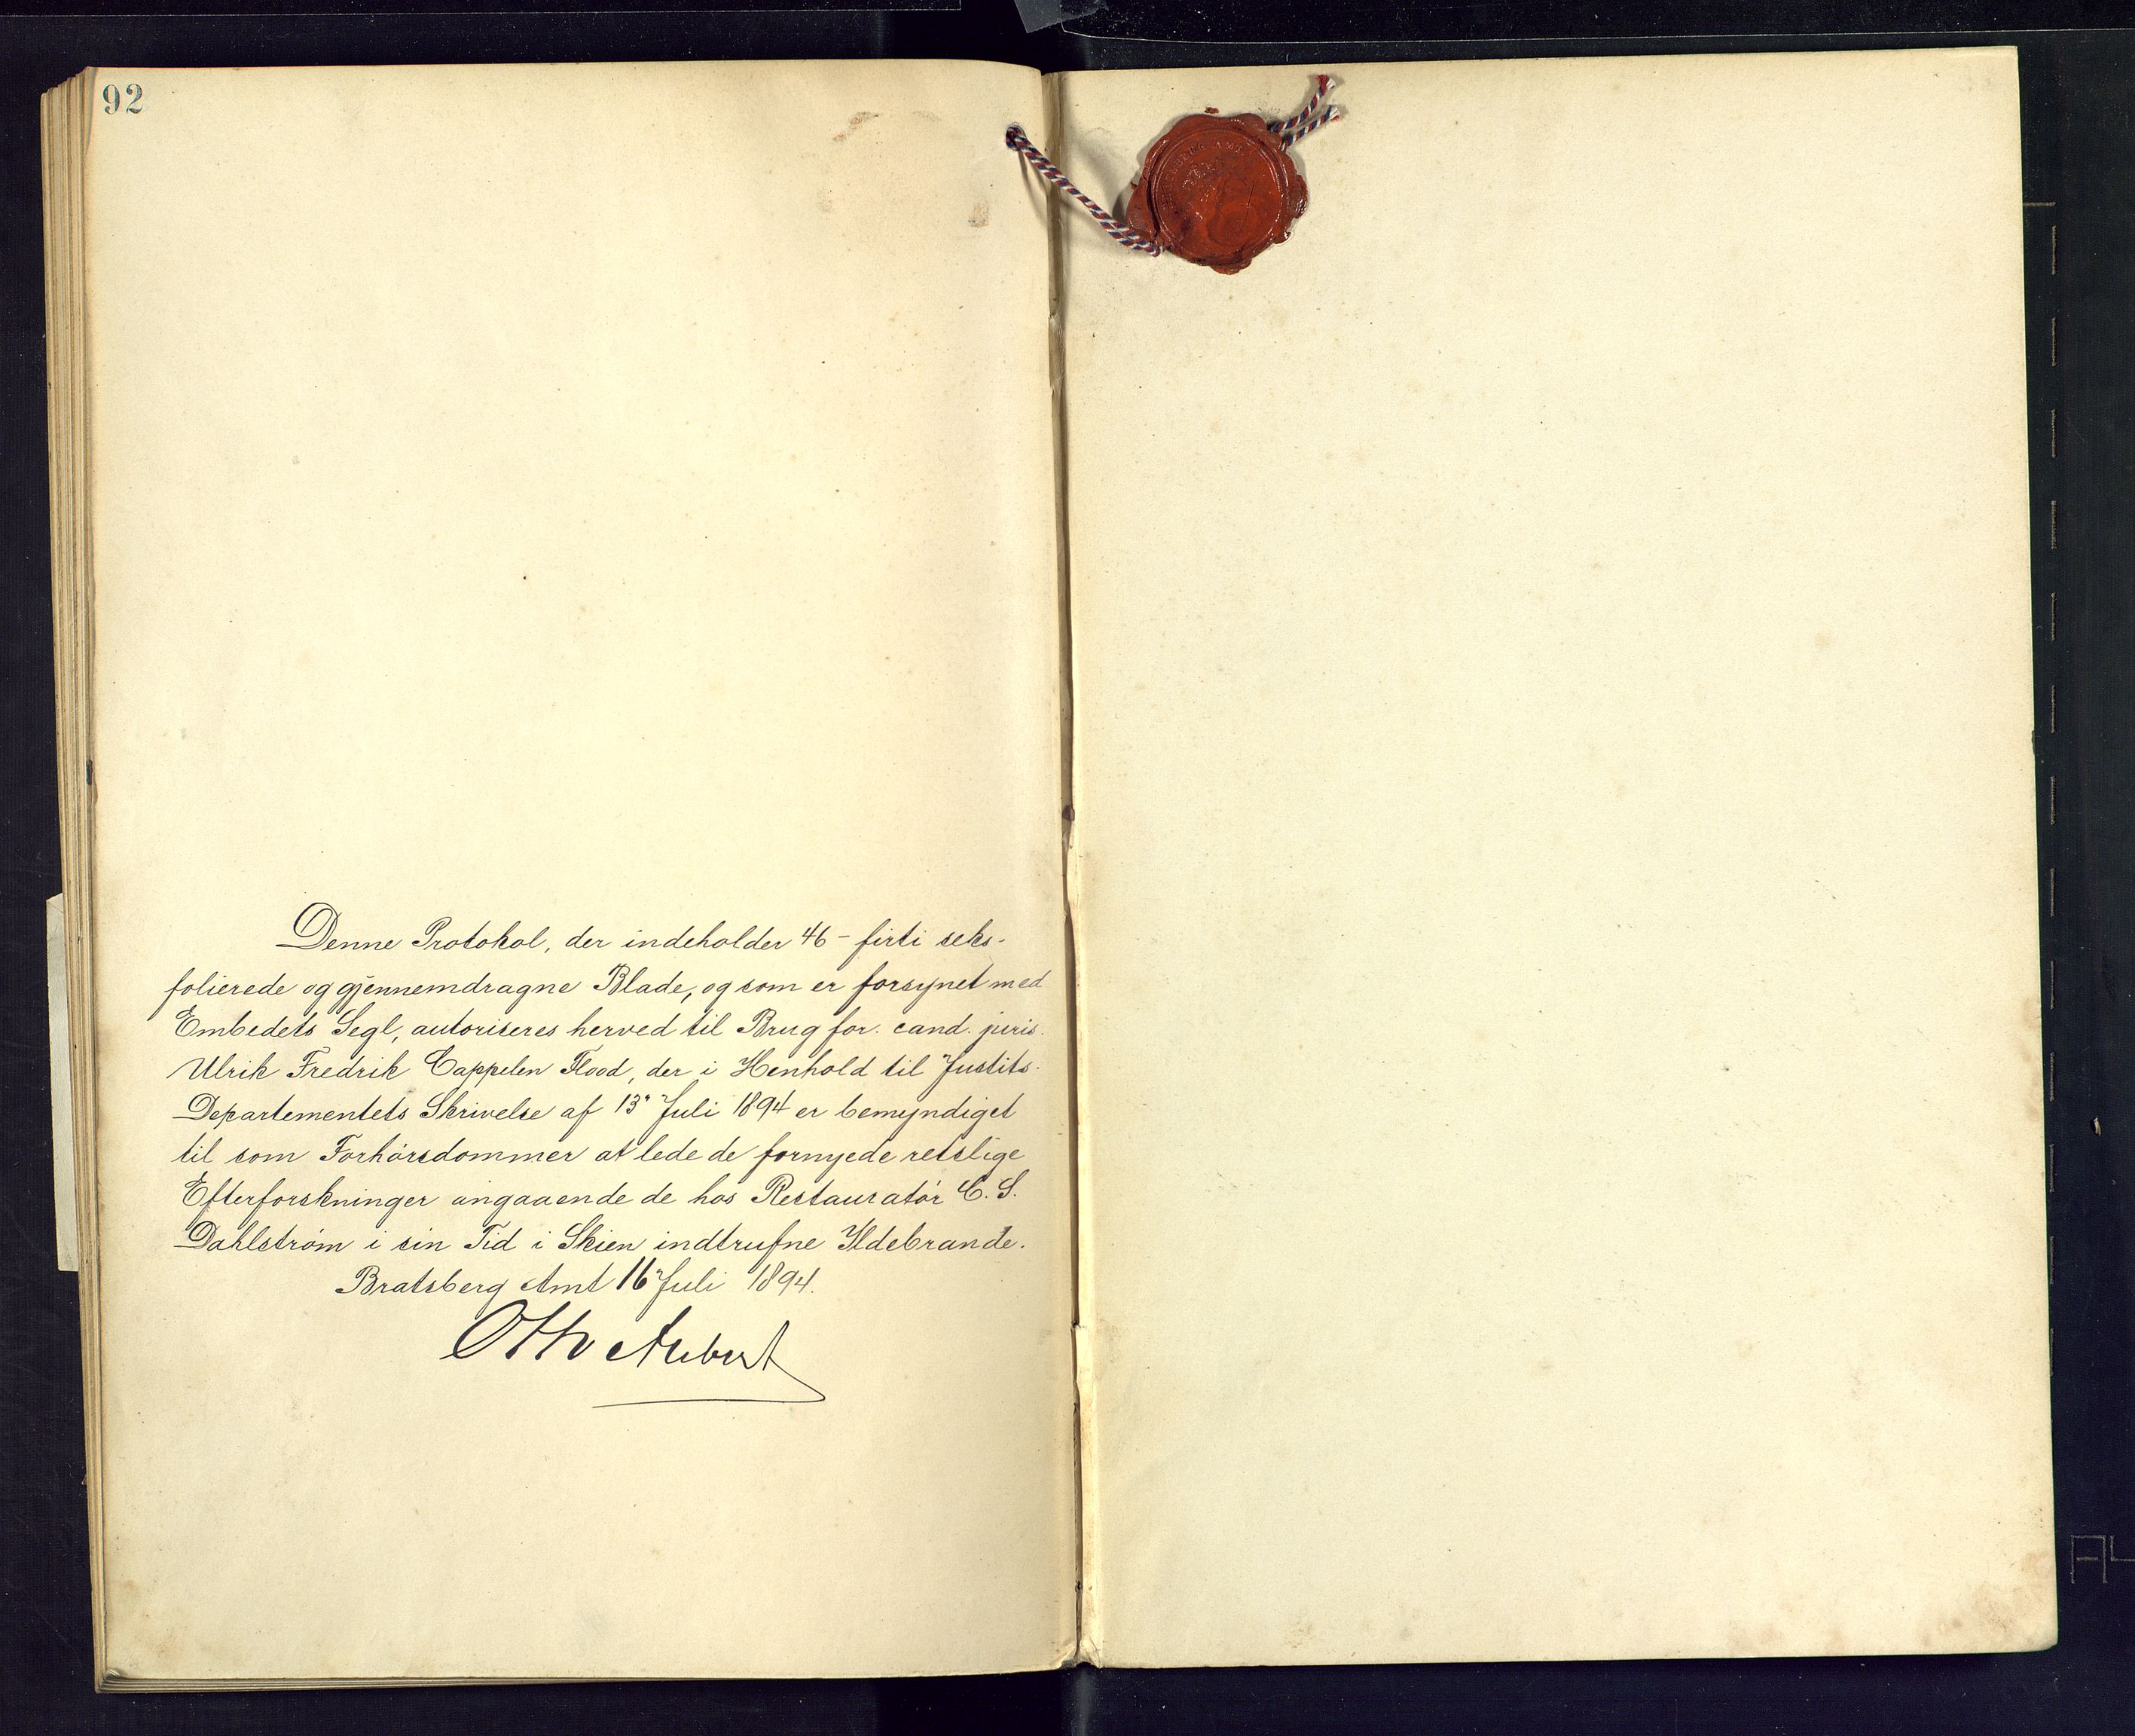 92
Denne Protokol, der indeholder 46 - firti seks -
folierede og gjennemdragne Blade, og som er forsynet med
Embedets Segl, autoriseres herved til Brug for cand. juris.
Ulrik Fredrik Cappelen Flood, der i Henhold til Justits-
Departementets Skrivelse af 13' Juli 1894 er bemyndiget
til som Forhørsdommer at lede de fornyede retslige
Efterforskninger angaaende de hos Restauratør C. S.
Dahlstrøm i sin Tid i Skien indtrufne Ildebrande.
Bratsberg Amt 16' Juli 1894.
Otto Aubert